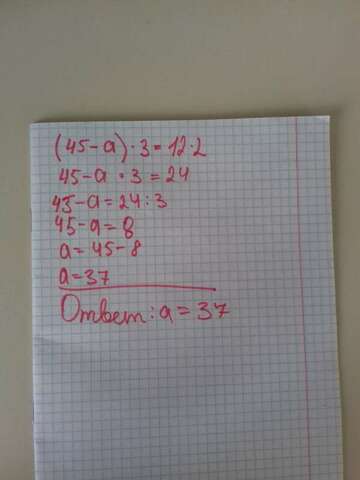 (45-a)·3=12·2
45-a·3=24
45-a=24:3
45-a=8
a=45-8
a=37
Ответ: a=37